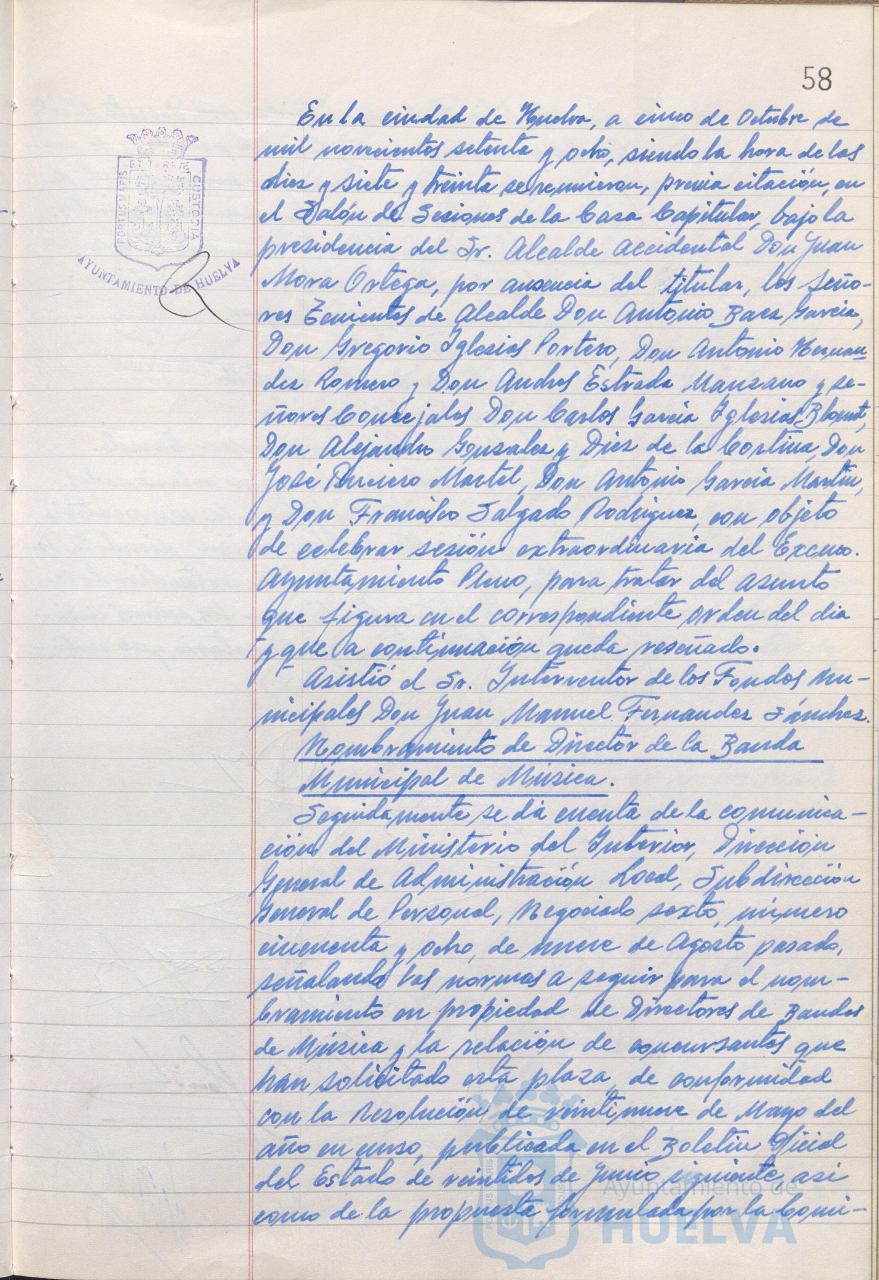 58
PORTUS MARIS ET TERRE CUSTODIA
AYUNTAMIENTO DE HUELVA
En la ciudad de Huelva, a cinco de Octubre de
mil novecientos setenta y ocho, siendo la hora de las
diez y siete y treinta se reunieron, previa citación, en
el Salón de Sesiones de la Casa Capitular, bajo la
presidencia del Sr. Alcalde accidental Don Juan
Mora Ortega, por ausencia del titular, los Seño-
res Tenientes de Alcalde Don Antonio Baez García,
Don Gregorio Iglesias Portero, Don Antonio Hernan-
dez Romero y Don Andres Estrada Manzano y se-
ñores Concejales Don Carlos García Iglesias Blount,
Don Alejandro Gonzalez y Diez de la Cortina, Don
José Martel, Don Antonio García Martín,
y Don Francisco Salgado Rodriguez, con objeto
de celebrar sesión extraordinaria del Excmo.
Ayuntamiento Pleno, para tratar del asunto
que figura en el correspondiente orden del dia
y que a continuación queda reseñado.
Asistió el Sr. Interventor de los Fondos Mu-
nicipales Don Juan Manuel Fernandez Sánchez.
Nombramiento de Director de la Banda
Municipal de Música.
Seguidamente se dá cuenta de la comunica-
ción del Ministerio del Interior, Dirección
General de Administración Local, Subdirección
General de Personal, Negociado sexto, número
cincuenta y ocho, de nueve de Agosto pasado,
señalando las normas a seguir para el nom-
bramiento en propiedad de Directores de Bandas
de Música y la relación de concursantes que
han solicitado esta plaza, de conformidad
con la Resolución de veintinueve de Mayo del
año en curso, publicada en el Boletin Oficial
del Estado de veintidos de Junio siguiente, asi
como de la propuesta formulada por la Comi-
Ayuntamiento de
HUELVA